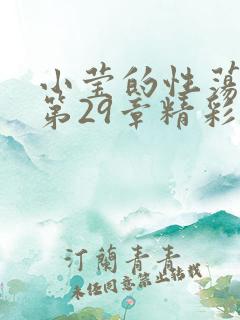 小莹的性荡
第29章精彩
汀蘭青青
未经同意禁止转载